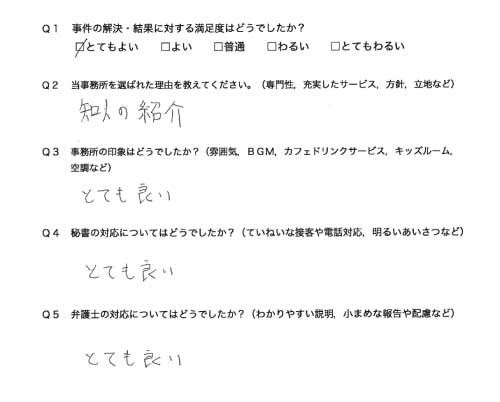 Q1 事件の解決・結果に対する満足度はどうでしたか？
☑とてもよい □よい □普通 □わるい □とてもわるい
Q2 当事務所を選ばれた理由を教えてください。（専門性，充実したサービス，方針，立地など）
知人の紹介
Q3 事務所の印象はどうでしたか？（雰囲気，ＢＧＭ，カフェドリンクサービス，キッズルーム，
空調など）
とても良い
Q4 秘書の対応についてはどうでしたか？（ていねいな接客や電話対応，明るいあいさつなど）
とても良い
Q5 弁護士の対応についてはどうでしたか？（わかりやすい説明，小まめな報告や配慮など）
とても良い